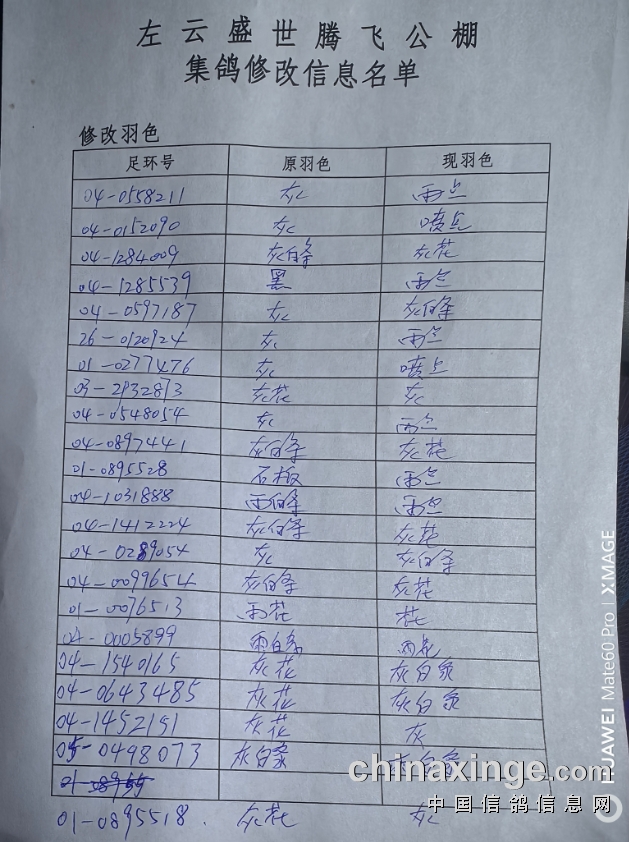 左云盛世腾飞公棚
集鸽修改信息名单
修改羽色
足环号 原羽色 现羽色
04-0558211 灰 雨点
04-0152090 灰 喷点
04-1284009 灰白条 灰花
04-1285539 黑 雨点
04-0597187 灰 灰白条
26-0120924 灰 雨点
01-0277476 灰 喷点
03-2932813 灰花 灰
04-0548054 灰 雨点
04-0897441 灰白条 灰花
01-0895528 石板 雨点
04-1031888 雨白条 雨点
04-1412224 灰白条 灰花
04-0289054 灰 灰白条
04-0099654 灰白条 灰花
01-0076513 雨花 花
04-0005899 雨白条 雨花
04-1540165 灰花 灰白条
04-0643485 灰花 灰白条
04-1452151 灰花 灰
05-0498073 灰白条 灰白条
01-0895518. 灰花 灰
HUAWEI Mate60 Pro | XMAGE
chinaxinge.com
中国信鸽信息网